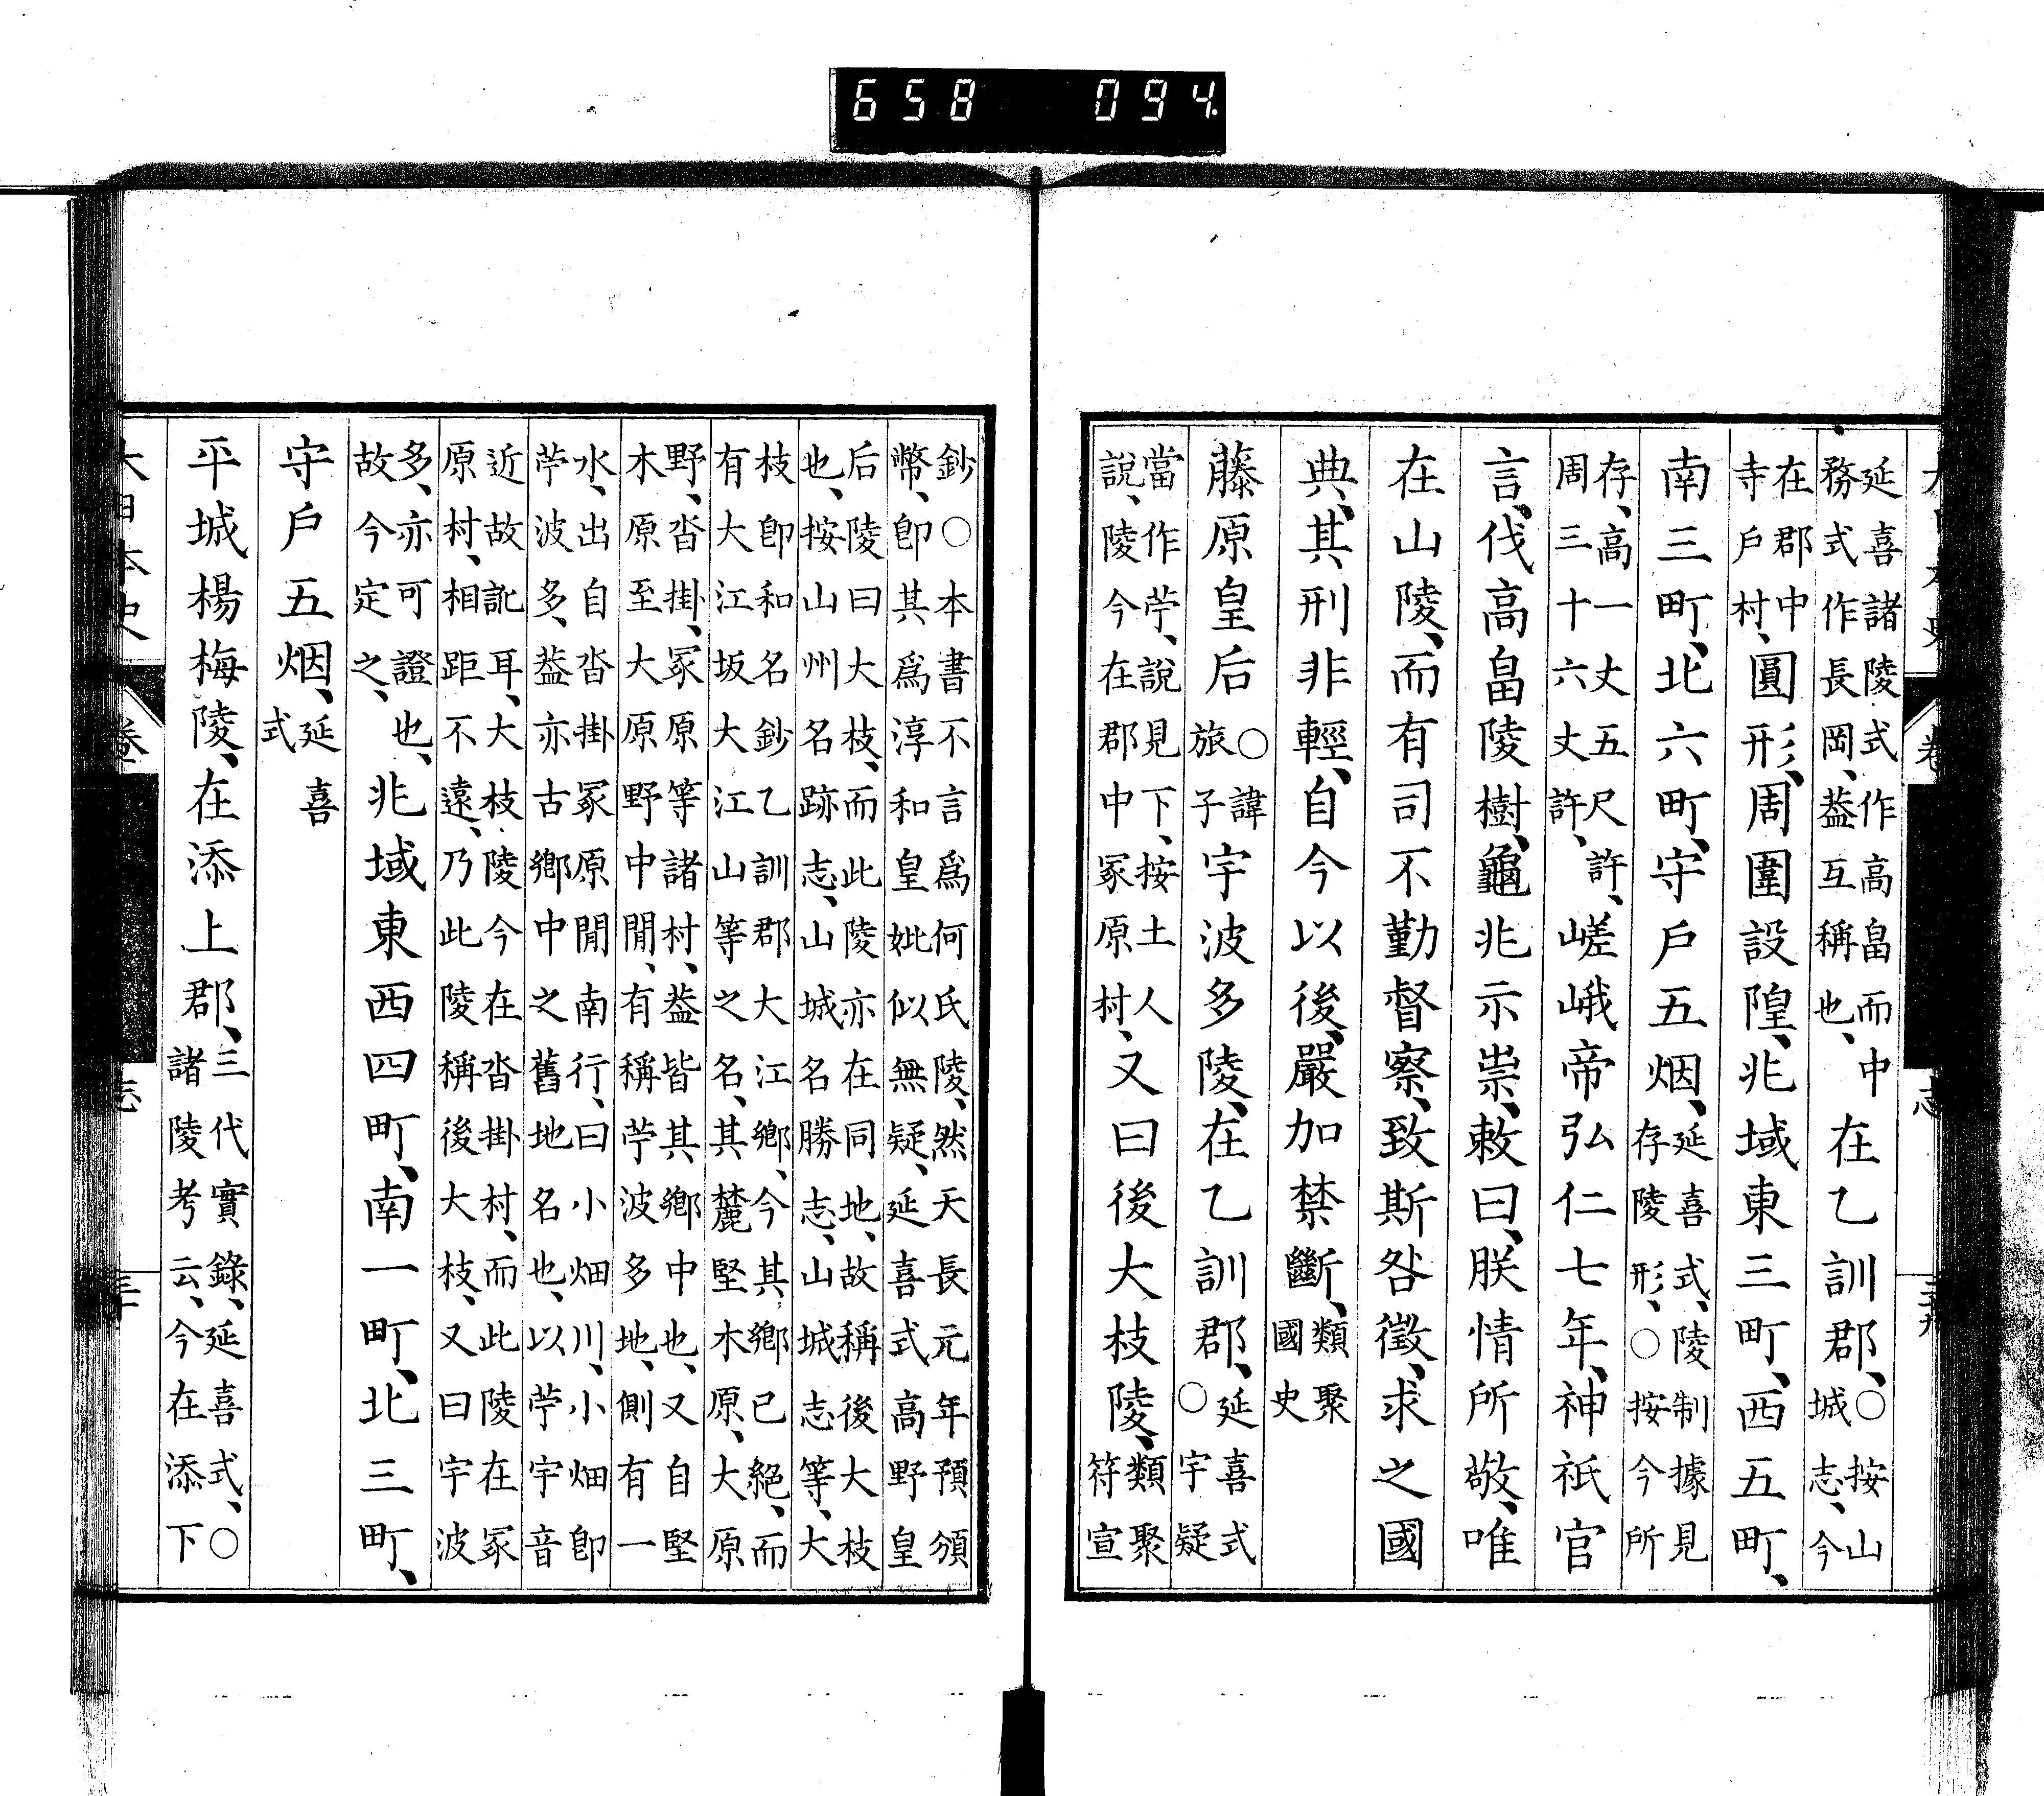 658 094
延喜諸陵式作高畠而中務式作長岡、葢互稱也、在乙訓郡、○按山城志、今
在郡中寺戶村、圓形、周圍設隍、兆域東三町、西五町、
南三町、北六町、守戶五烟、延喜式、陵制據見存陵形、○按今所
存、高一丈五尺許、周三十六丈許、嵯峨帝弘仁七年、神祇官
言、伐高畠陵樹、龜兆示祟、敕曰、朕情所敬、唯
在山陵、而有司不勤督察、致斯咎徵、求之國
典、其刑非輕、自今以後、嚴加禁斷、類聚國史
藤原皇后○諱旅子宇波多陵、在乙訓郡、延喜式○宇疑
當作苧、說見下、按土人說、陵今在郡中冢原村、又曰後大枝陵、類聚符宣
鈔○本書不言爲何氏陵、然天長元年預頒幣、卽其爲淳和皇妣似無疑、延喜式高野皇
后陵曰大枝、而此陵亦在同地、故稱後大枝也、按山州名跡志、山城名勝志、山城志等、大
枝卽和名鈔乙訓郡大江鄉、今其鄉已絕、而有大江坂大江山等之名、其麓堅木原、大原
野、沓掛、冢原等諸村、葢皆其鄉中也、又自堅木原至大原野中閒、有稱苧波多地、側有一
水、出自沓掛冢原閒南行、曰小畑川、小畑卽苧波多、葢亦古鄉中之舊地名也、以苧宇音
近故訛耳、大枝陵今在沓掛村、而此陵在冢原村、相距不遠、乃此陵稱後大枝、又曰宇波
多、亦可證也、故今定之、兆域東西四町、南一町、北三町、
守戶五烟、延喜式
平城楊梅陵、在添上郡、三代實錄、延喜式、○諸陵考云、今在添下
大日本史 卷 志